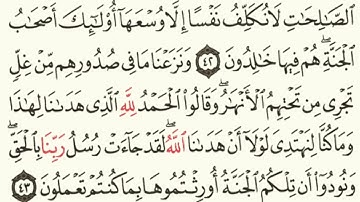 ٱلصَّـٰلِحَـٰتِ لَا نُكَلِّفُ نَفْسًا إِلَّا وُسْعَهَآ أُو۟لَـٰٓئِكَ أَصْحَـٰبُ
ٱلْجَنَّةِ ۖ هُمْ فِيهَا خَـٰلِدُونَ ٤٢ وَنَزَعْنَا مَا فِى صُدُورِهِم مِّنْ غِلٍّ
تَجْرِى مِن تَحْتِهِمُ ٱلْأَنْهَـٰرُ ۖ وَقَالُوا۟ ٱلْحَمْدُ لِلَّهِ ٱلَّذِى هَدَىٰنَا لِهَـٰذَا
وَمَا كُنَّا لِنَهْتَدِىَ لَوْلَآ أَنْ هَدَىٰنَا ٱللَّهُ ۖ لَقَدْ جَآءَتْ رُسُلُ رَبِّنَا بِٱلْحَقِّ ۖ
وَنُودُوٓا۟ أَن تِلْكُمُ ٱلْجَنَّةُ أُورِثْتُمُوهَا بِمَا كُنتُمْ تَعْمَلُونَ ٤٣